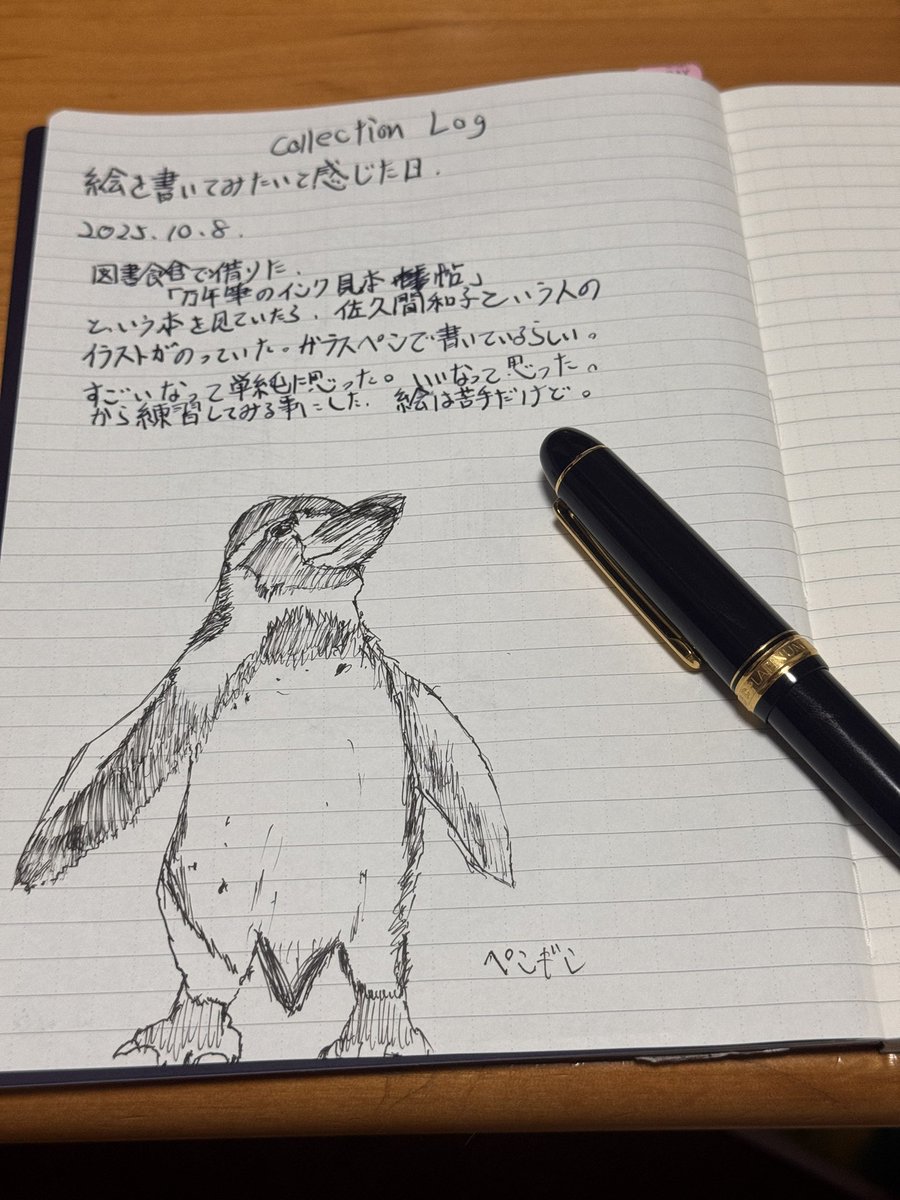 Collection Log
絵を書いてみたいと感じた日.
2025.10.8.
図書館で借りた.
「万年筆のインク見本帖」
という本を見ていたら、佐久間和子という人の
イラストがのっていた。ガラスペンで書いているらしい。
すごいなって単純に思った。いいなって思った。
から練習してみる事にした. 絵は苦手だけど。
ペンギン
PLATINUM